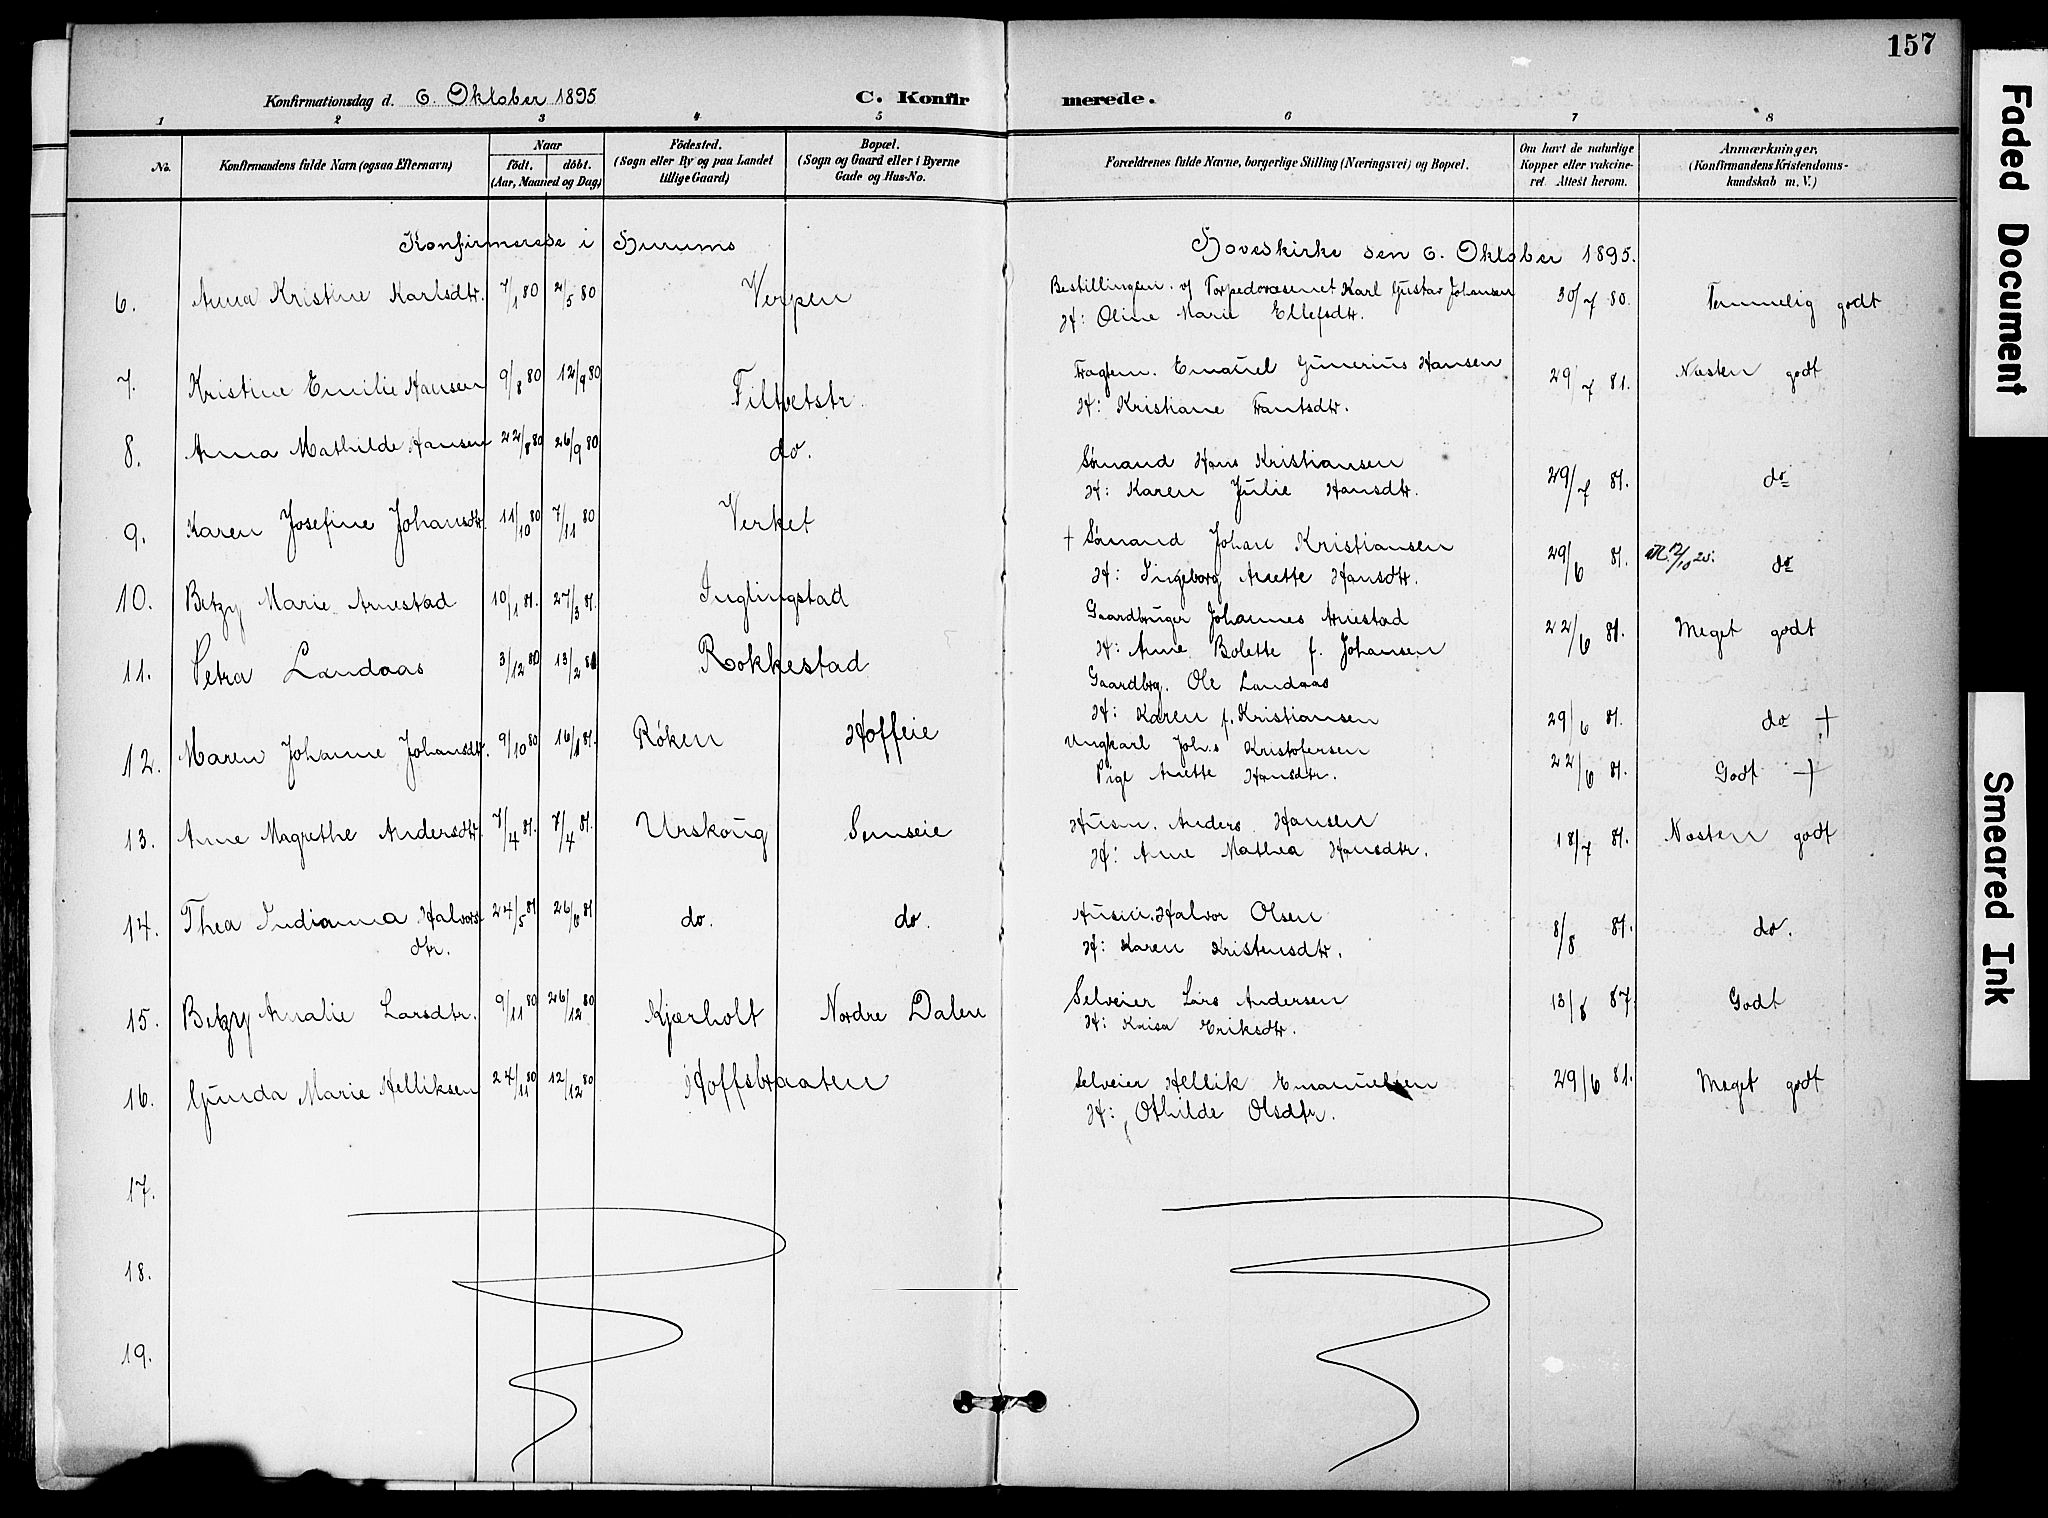 157
Konfirmationsdag d. 6. Oktober 1895 C. Konfir merede.
1 2 3 4 5 6 7 8
No. Konfirmandens fulde Navn (ogsaa Efternavn) Naar födt. döbt. (Aar, Maaned og Dag) Födested. (Sogn eller By og paa Landet tillige Gaard) Bopæl. (Sogn og Gaard eller i Byerne Gade og Hus-No. Forældrenes fulde Navne, borgerlige Stilling (Næringsvei) og Bopæl. Om havt de naturlige Kopper eller vakcineret. Attest herom. Anmærkninger, (Konfirmandens Kristendomskundskab m. V.)
Konfirmerede i Hurums Hovedkirke den 6. Oktober 1895.
6. Anna Kristine Karlsdtr. 7/1 80 2/5 80 Verpen Bestillingsm. v/ Torpedovæsenet Karl Gustav Johansen 30/7 80. Temmelig godt
H: Oline Marie Ellefsdtr.
7. Kristine Emilie Hansen 9/8 80 12/9 80 Filtvetstr. Fragtem. Emanuel Gunerius Hansen 29/7 81. Næsten godt
H: Kristiane Frantsdtr.
8. Anna Mathilde Hansen 22/8 80 26/9 80 do. Sømand Hans Kristiansen 29/7 81. do
H: Karen Julie Hansdtr.
9. Karen Josefine Johansdtr. 11/10 80 7/11 80 Verket † Sømand Johan Kristiansen 29/6 81. 12/10 25. do
H: Ingeborg Anette Hansdtr.
10. Betzy Marie Arnestad 10/1 81. 27/3 81. Inglingstad Gaardbruger Johannes Arnestad 22/6 81. Meget godt
H: Anne Bolette f. Johansen
11. Petra Landaas 3/12 80 13/2 81 Rokkestad Gaardbrg. Ole Landaas
H: Karen f. Kristiansen 29/6 81. do †
12. Maren Johanne Johansdtr. 9/10 80 16/1 81. Røken Hoffeie Ungkarl Johs Kristofersen 22/6 81. Godt †
Pige Anette Hansdtr.
13. Anne Magrethe Andersdtr. 7/4 81. 7/4 81. Urskoug Semseie Husm. Anders Hansen 18/7 81. Næsten godt
H: Anne Mathea Hansdtr.
14. Thea Indiana Halvorsdtr. 24/5 81 26/6 81 do. do. Husm. Halvor Olsen 8/8 81. do.
H: Karen Kristensdtr.
15. Betzy Amalie Larsdtr. 9/11 80 26/12 80 Kjærholt Nordre Dalen Selveier Lars Andersen 13/8 87. Godt
H: Krisa Eriksdtr.
16. Gunda Marie Helliksen 24/11 80 12/12 80 Hoffsbraaten Selveier Hellik Emanuelsen 29/6 81. Meget godt
H: Othilde Olsdtr.
17.
18.
19.
Faded Document
Smeared Ink